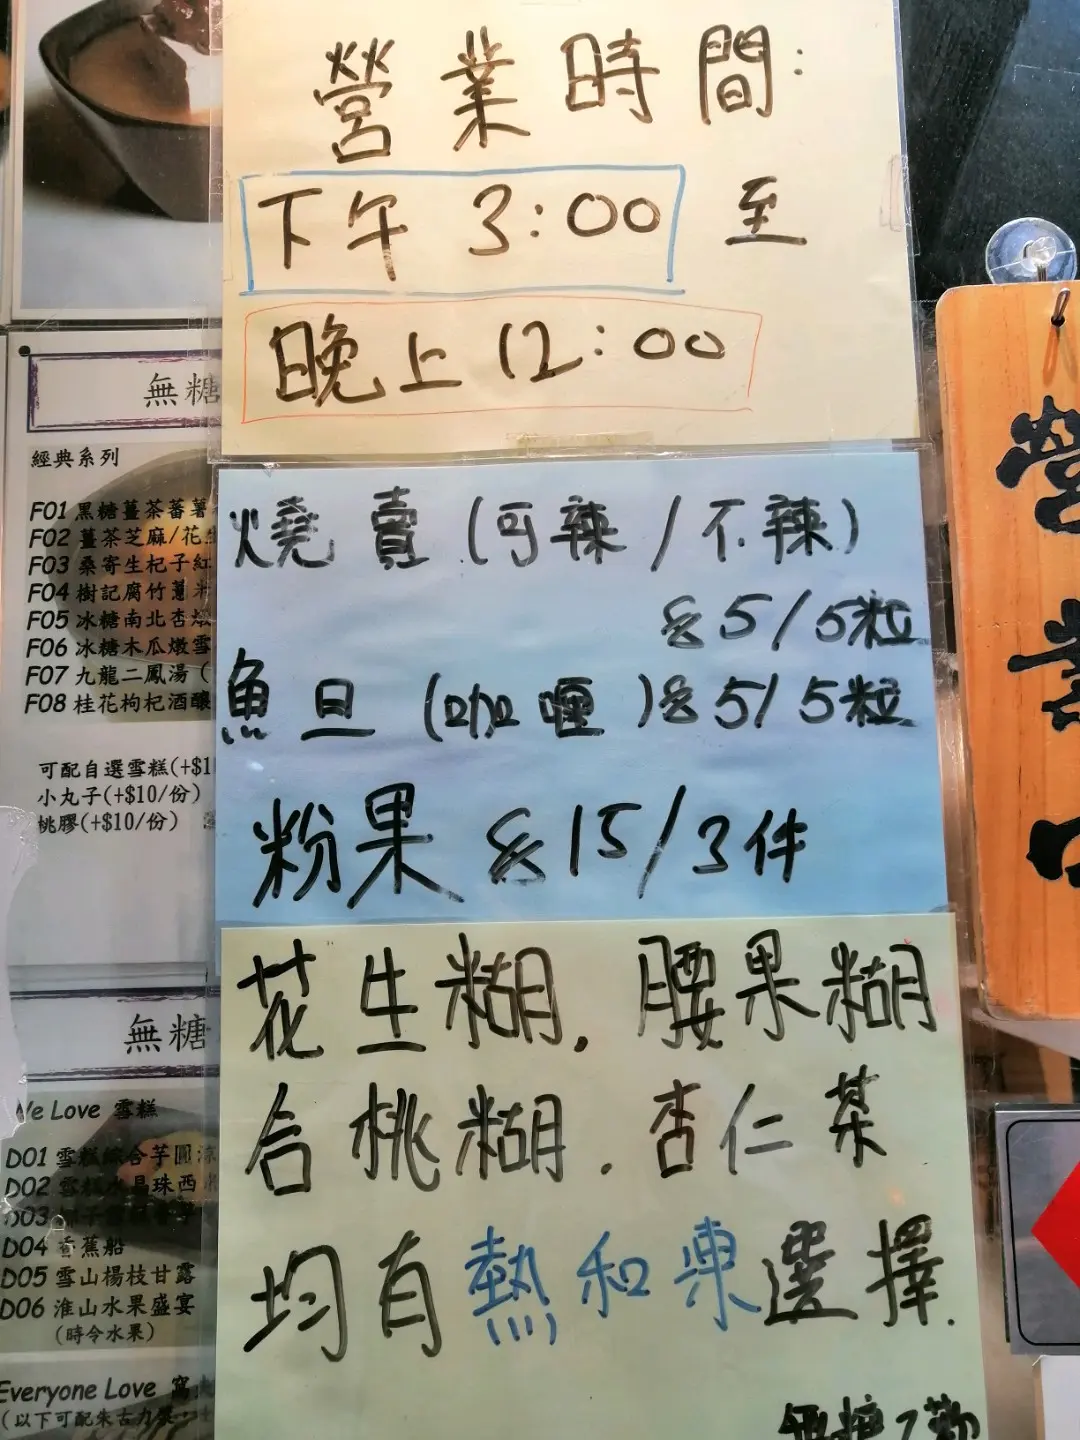 營業時間:
下午 3:00 至
晚上 12:00
燒賣 (可辣/不辣)
$5/5粒
魚旦 (咖喱) $5/5粒
粉果 $15/3件
花生糊. 腰果糊
合桃糊. 杏仁茶
均有熱和凍選擇.
無糖
經典系列
F01 黑糖薑茶蕃薯
F02 薑茶芝麻/花生
F03 桑寄生杞子紅
F04 樹記腐竹薏米
F05 冰糖南北杏燉
F06 冰糖木瓜燉雪
F07 九龍二鳳湯 (
F08 桂花枸杞酒釀
可配自選雪糕(+$1
小丸子(+$10/份)
桃膠(+$10/份)
無糖
We Love 雪糕
D01 雪糕綜合芋圓涼
D02 雪糕水晶珠西
D03
D04 香蕉船
D05 雪山楊枝甘露
D06 淮山水果盛宴
(時令水果)
Everyone Love 窩
(以下可配朱古力漿
營業中